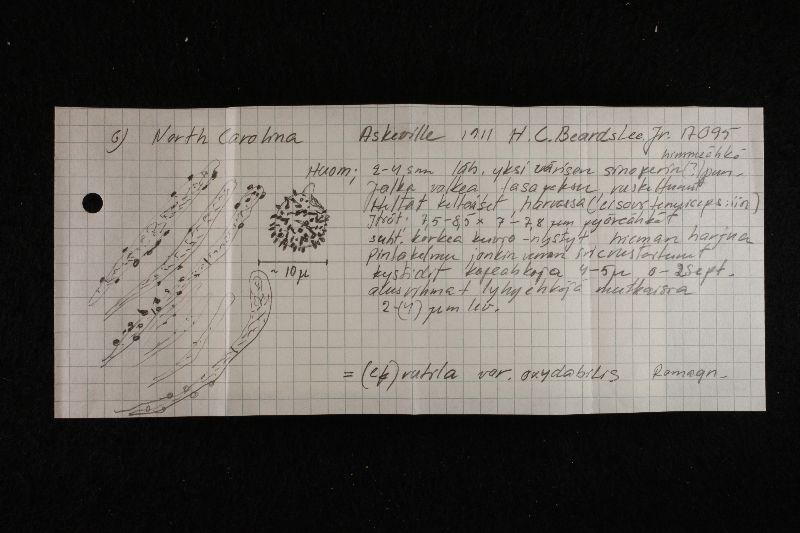 6) North Carolina Askeville 1911 H.C. Beardslee, Jr. 17095
himmeähkö
Huom; 2-4 snm läh. yksi värisen sinoperin(?)pun.
Jalka valkea, tasapaksu, ruskettunut
Heltat keltaiset, harvassa
Itiöt: 7,5-8,5 × 7-7,8 µm pyöreähköt
suht. korkea kuvio -nystyt hieman harjua
Pintakelmu jonkin verran incrustoitunut
kystidit kapeahkoja 4-5µ 0-2 sept.
alusrihmat lyhyehköjä mutkaisia
2-(4) µm lev.
~ 10 µ
= (cf) rutila var. oxydabilis Romagn.